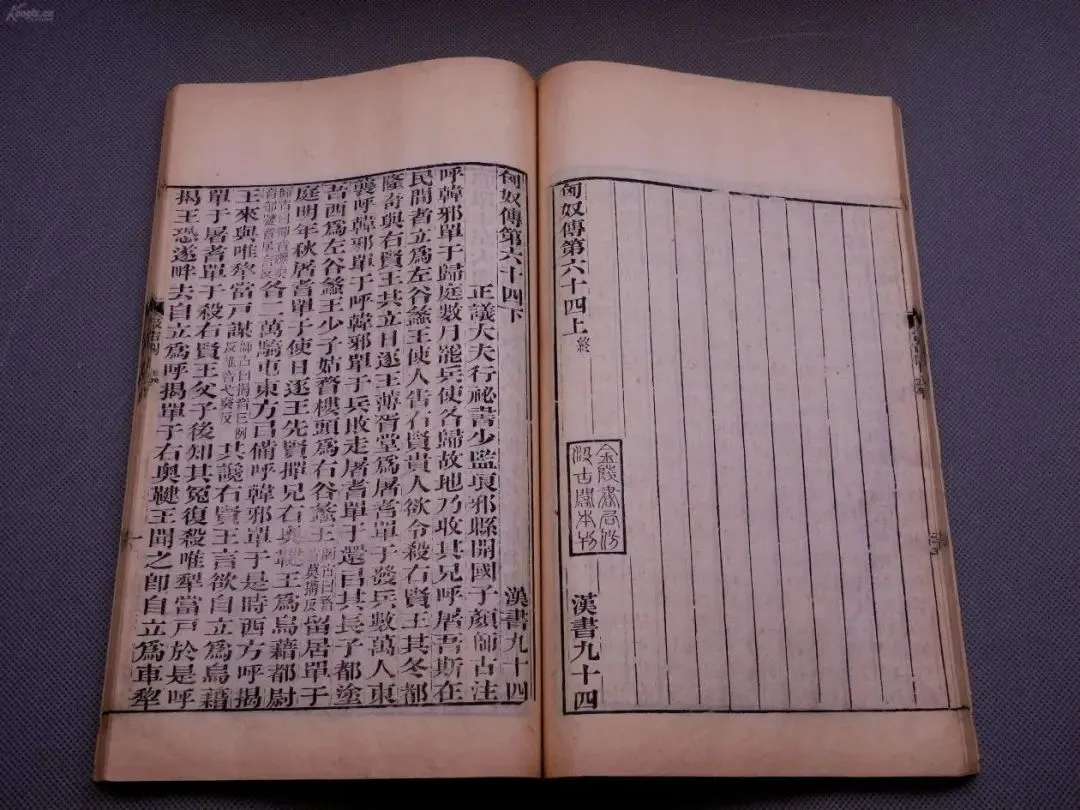 匈奴傳第六十四上終 漢書九十四
金陵書局仿
汲古閣本刊
匈奴傳第六十四下 漢書九十四
正議大夫行祕書少監琅邪縣開國子顏師古注
呼韓邪單于歸庭數月罷兵使各歸故地乃收其兄呼屠吾斯在
民間者立爲左谷蠡王使人告右賢貴人欲令殺右賢王其冬都
隆奇與右賢王共立日逐王薄胥堂爲屠耆單于發兵數萬人東
襲呼韓邪單于呼韓邪單于兵敗走屠耆單于還㠯其長子都塗
吾西爲左谷蠡王少子姑瞀樓頭爲右谷蠡王師古曰瞀音莫搆反留居單于
庭明年秋屠耆單于使日逐王先賢撣兄右奧鞬王爲烏藉都尉
師古曰撣音纏奧音郁鞬音居言反各二萬騎屯東方㠯備呼韓邪單于是時西方呼揭
王來與唯犂當戶謀師古曰揭音丘例反唯音弋癸反共讒右賢王言欲自立爲烏藉
單于屠耆單于殺右賢王父子後知其冤復殺唯犂當戶於是呼
揭王恐遂畔去自立爲呼揭單于右奧鞬王聞之卽自立爲車犂